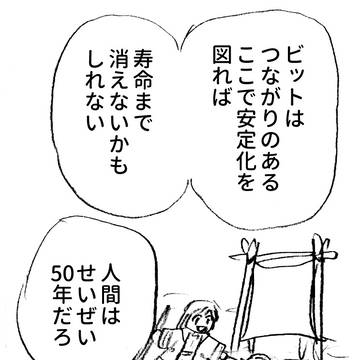 ビットは
つながりのある
ここで安定化を
図れば
寿命まで
消えないかも
しれない
人間は
せいぜい
50年だろ